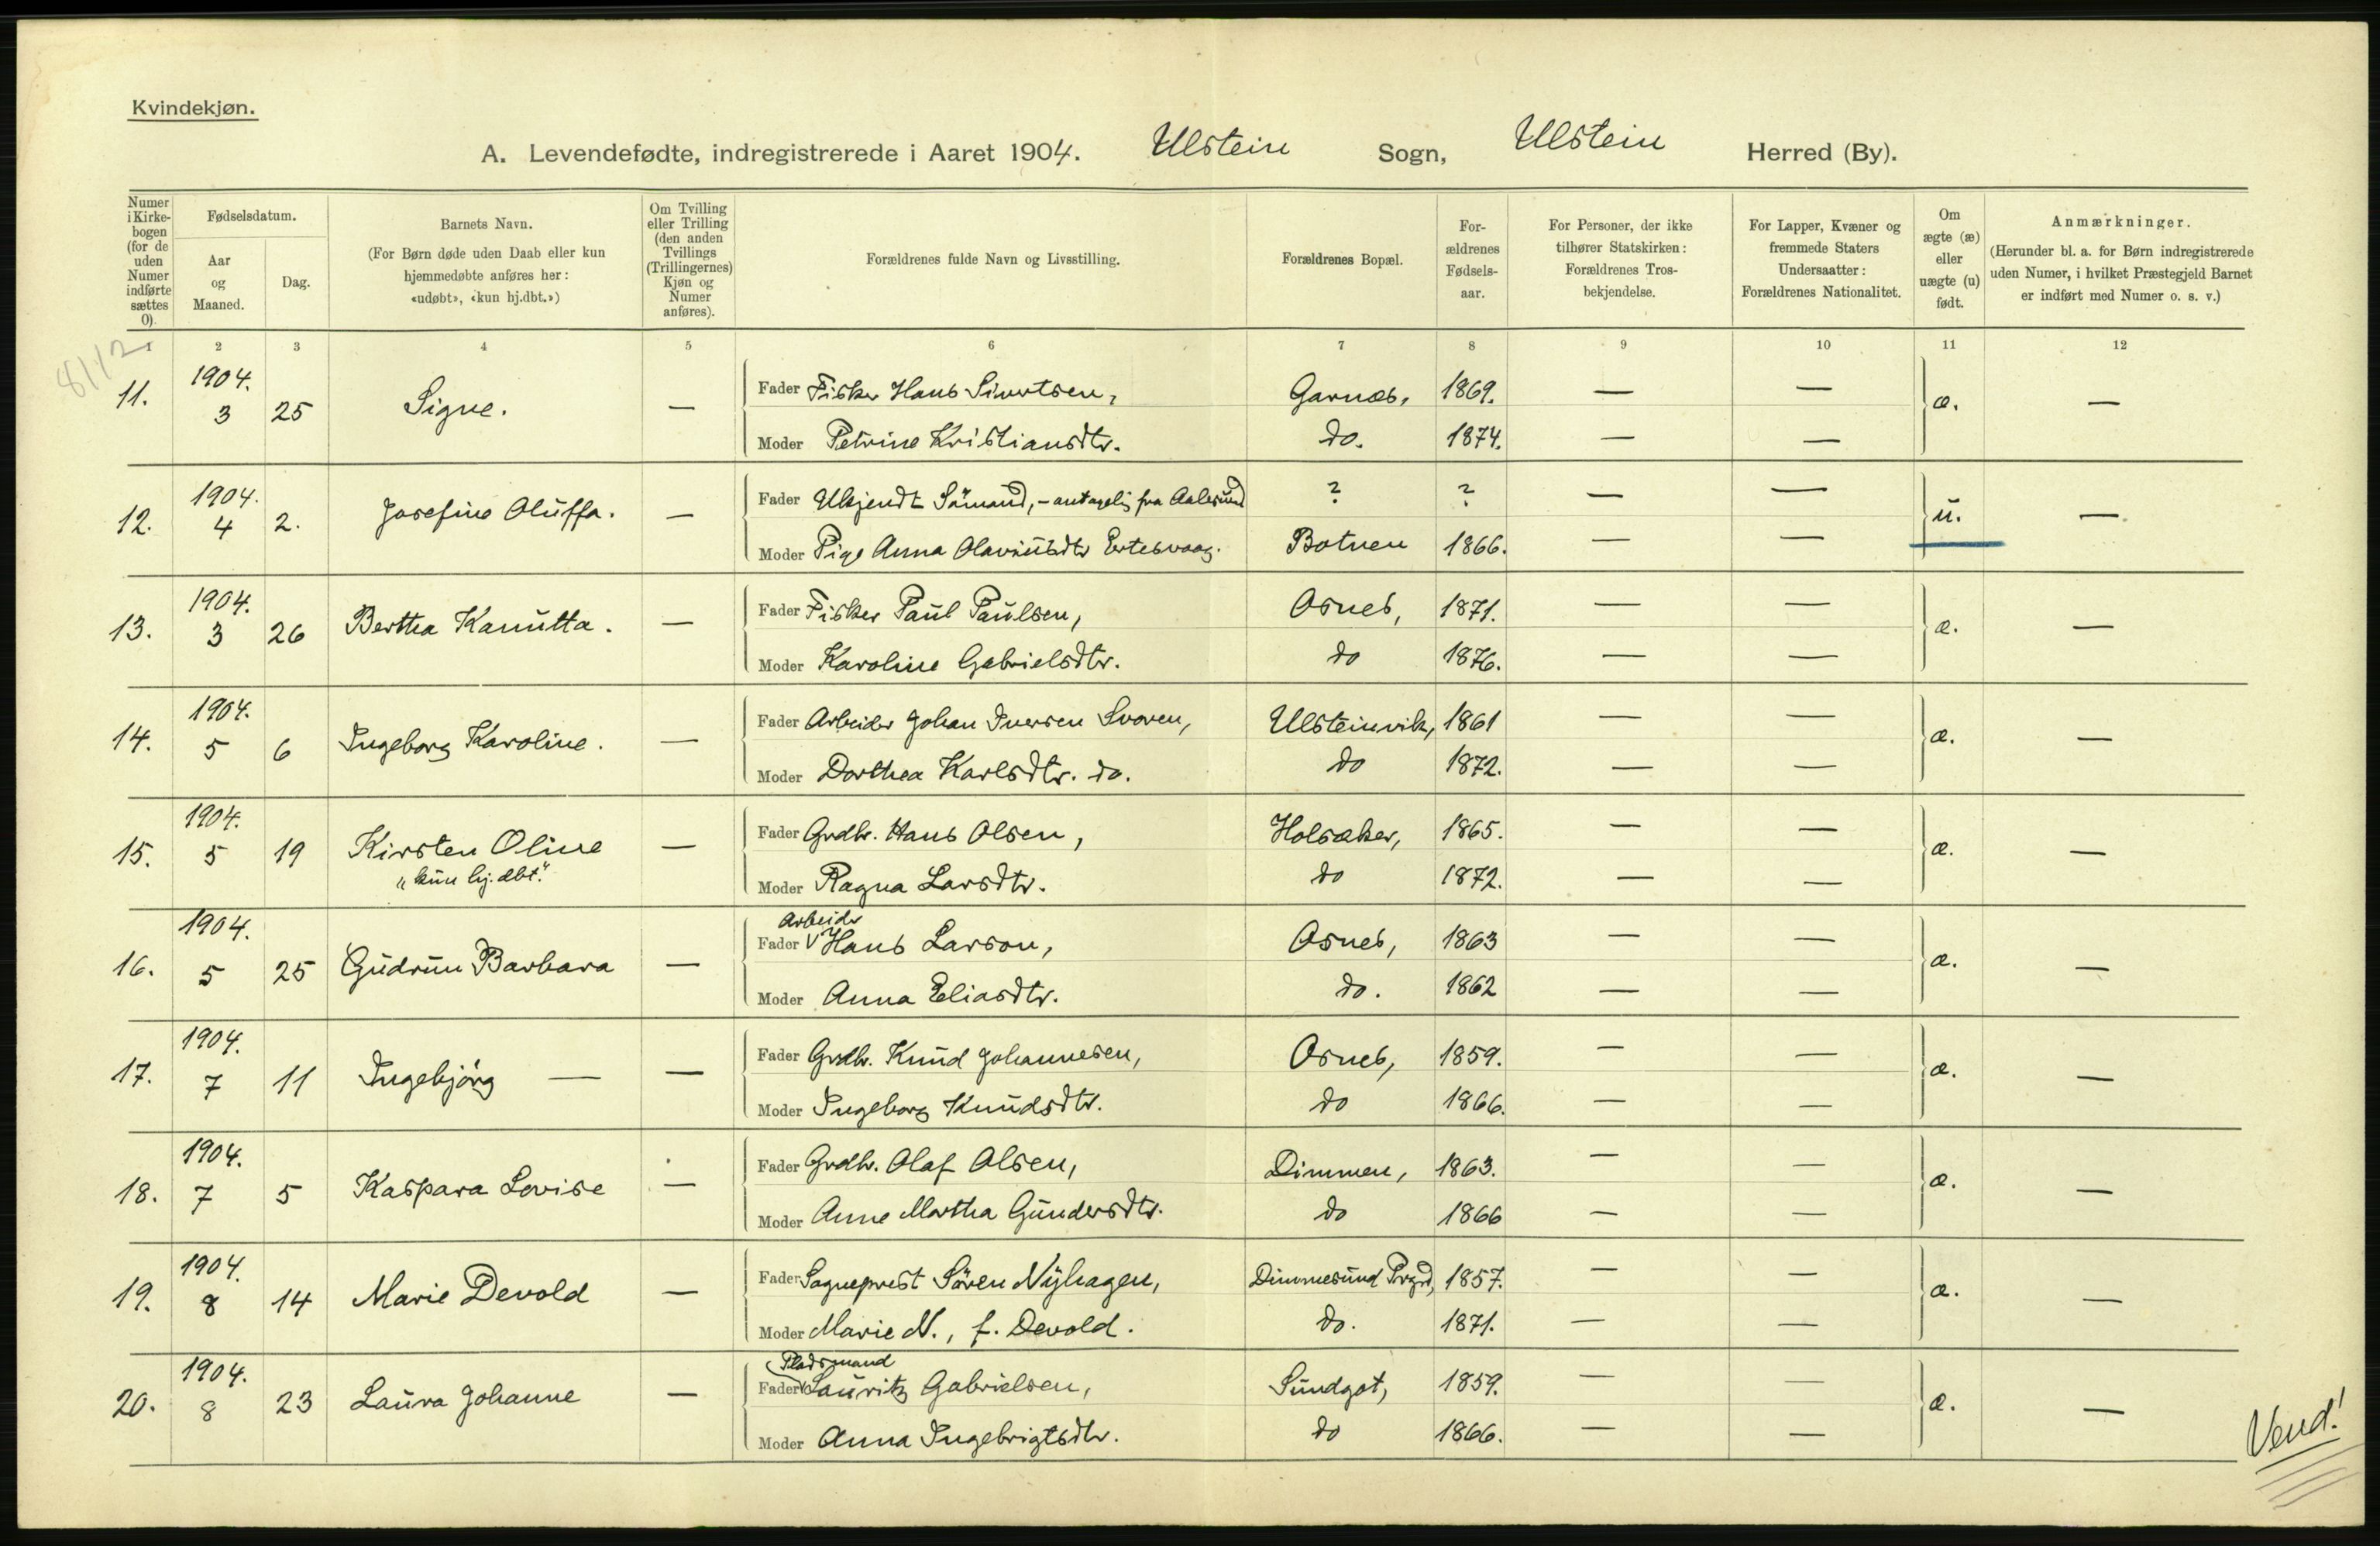 Kvindekjøn.
A. Levendefødte, indregistrerede i Aaret 1904. Ulstein Sogn, Ulstein Herred (By).
Numer i Kirke-bogen (for de uden Numer indførte sættes 0).
Fødselsdatum.
Aar og Maaned.
Dag.
Barnets Navn.
(For Børn døde uden Daab eller kun hjemmedøbte anføres her: «udøbt», «kun hj.dbt.»)
Om Tvilling eller Trilling (den anden Tvillings (Trillingernes) Kjøn og Numer anføres).
Forældrenes fulde Navn og Livsstilling.
Forældrenes Bopæl.
For-ældrenes Fødsels-aar.
For Personer, der ikke tilhører Statskirken: Forældrenes Tros-bekjendelse.
For Lapper, Kvæner og fremmede Staters Undersaatter: Forældrenes Nationalitet.
Om ægte (æ) eller uægte (u) født.
Anmærkninger.
(Herunder bl. a. for Børn indregistrerede uden Numer, i hvilket Præstegjeld Barnet er indført med Numer o. s. v.)
1 2 3 4 5 6 7 8 9 10 11 12
8112
11. 1904. 3 25 Signe. — Fader Fisker Hans Sivertsen, Garnæs, 1869. — — æ. —
Moder Petrine Kristiansdtr. do. 1874. — —
12. 1904. 4 2. Josefine Oluffa. — Fader Ukjendt Sömand, - antagelig fra Aalesund ? ? — — u. —
Moder Pige Anna Olaviusdtr Ertesvaag. Botnen 1866. — —
13. 1904. 3 26 Bertha Kanutta. — Fader Fisker Paul Paulsen, Osnes, 1871. — — æ. —
Moder Karoline Gabrielsdtr. do 1876. — —
14. 1904. 5 6 Ingeborg Karoline. — Fader Arbeider Johan Iversen Svoren, Ulsteinvik, 1861 — — æ. —
Moder Dorthea Karlsdtr. do. do 1872. — —
15. 1904. 5 19 Kirsten Oline — Fader Grdbr. Hans Olsen, Holsæker, 1865. — — æ. —
"kun hj. dbt."
Moder Ragna Larsdtr. do 1872. — —
16. 1904. 5 25 Gudrun Barbara — Fader Arbeider Hans Larson, Osnes, 1863 — — æ. —
Moder Anna Eliasdtr. do. 1862 — —
17. 1904. 7 11 Ingebjörg — — Fader Grdbr. Knud Johannesen, Osnes, 1859. — — æ. —
Moder Ingeborg Knudsdtr. do 1866. — —
18. 1904. 7 5 Kaspara Lovise — Fader Grdbr. Olaf Olsen, Dimmen, 1863. — — æ. —
Moder Anne Martha Gundersdtr. do 1866 — —
19. 1904. 8 14 Marie Devold — Fader Sogneprest Sören Nyhagen, Dimmesund Prgrd, 1857. — — æ. —
Moder Marie N., f. Devold. do. 1871. — —
20. 1904. 8 23 Laura Johanne — Fader Pladsmand Lauritz Gabrielsen, Sundgot, 1859. — — æ. —
Moder Anna Ingebrigtsdtr. do 1866. — —
Vend!